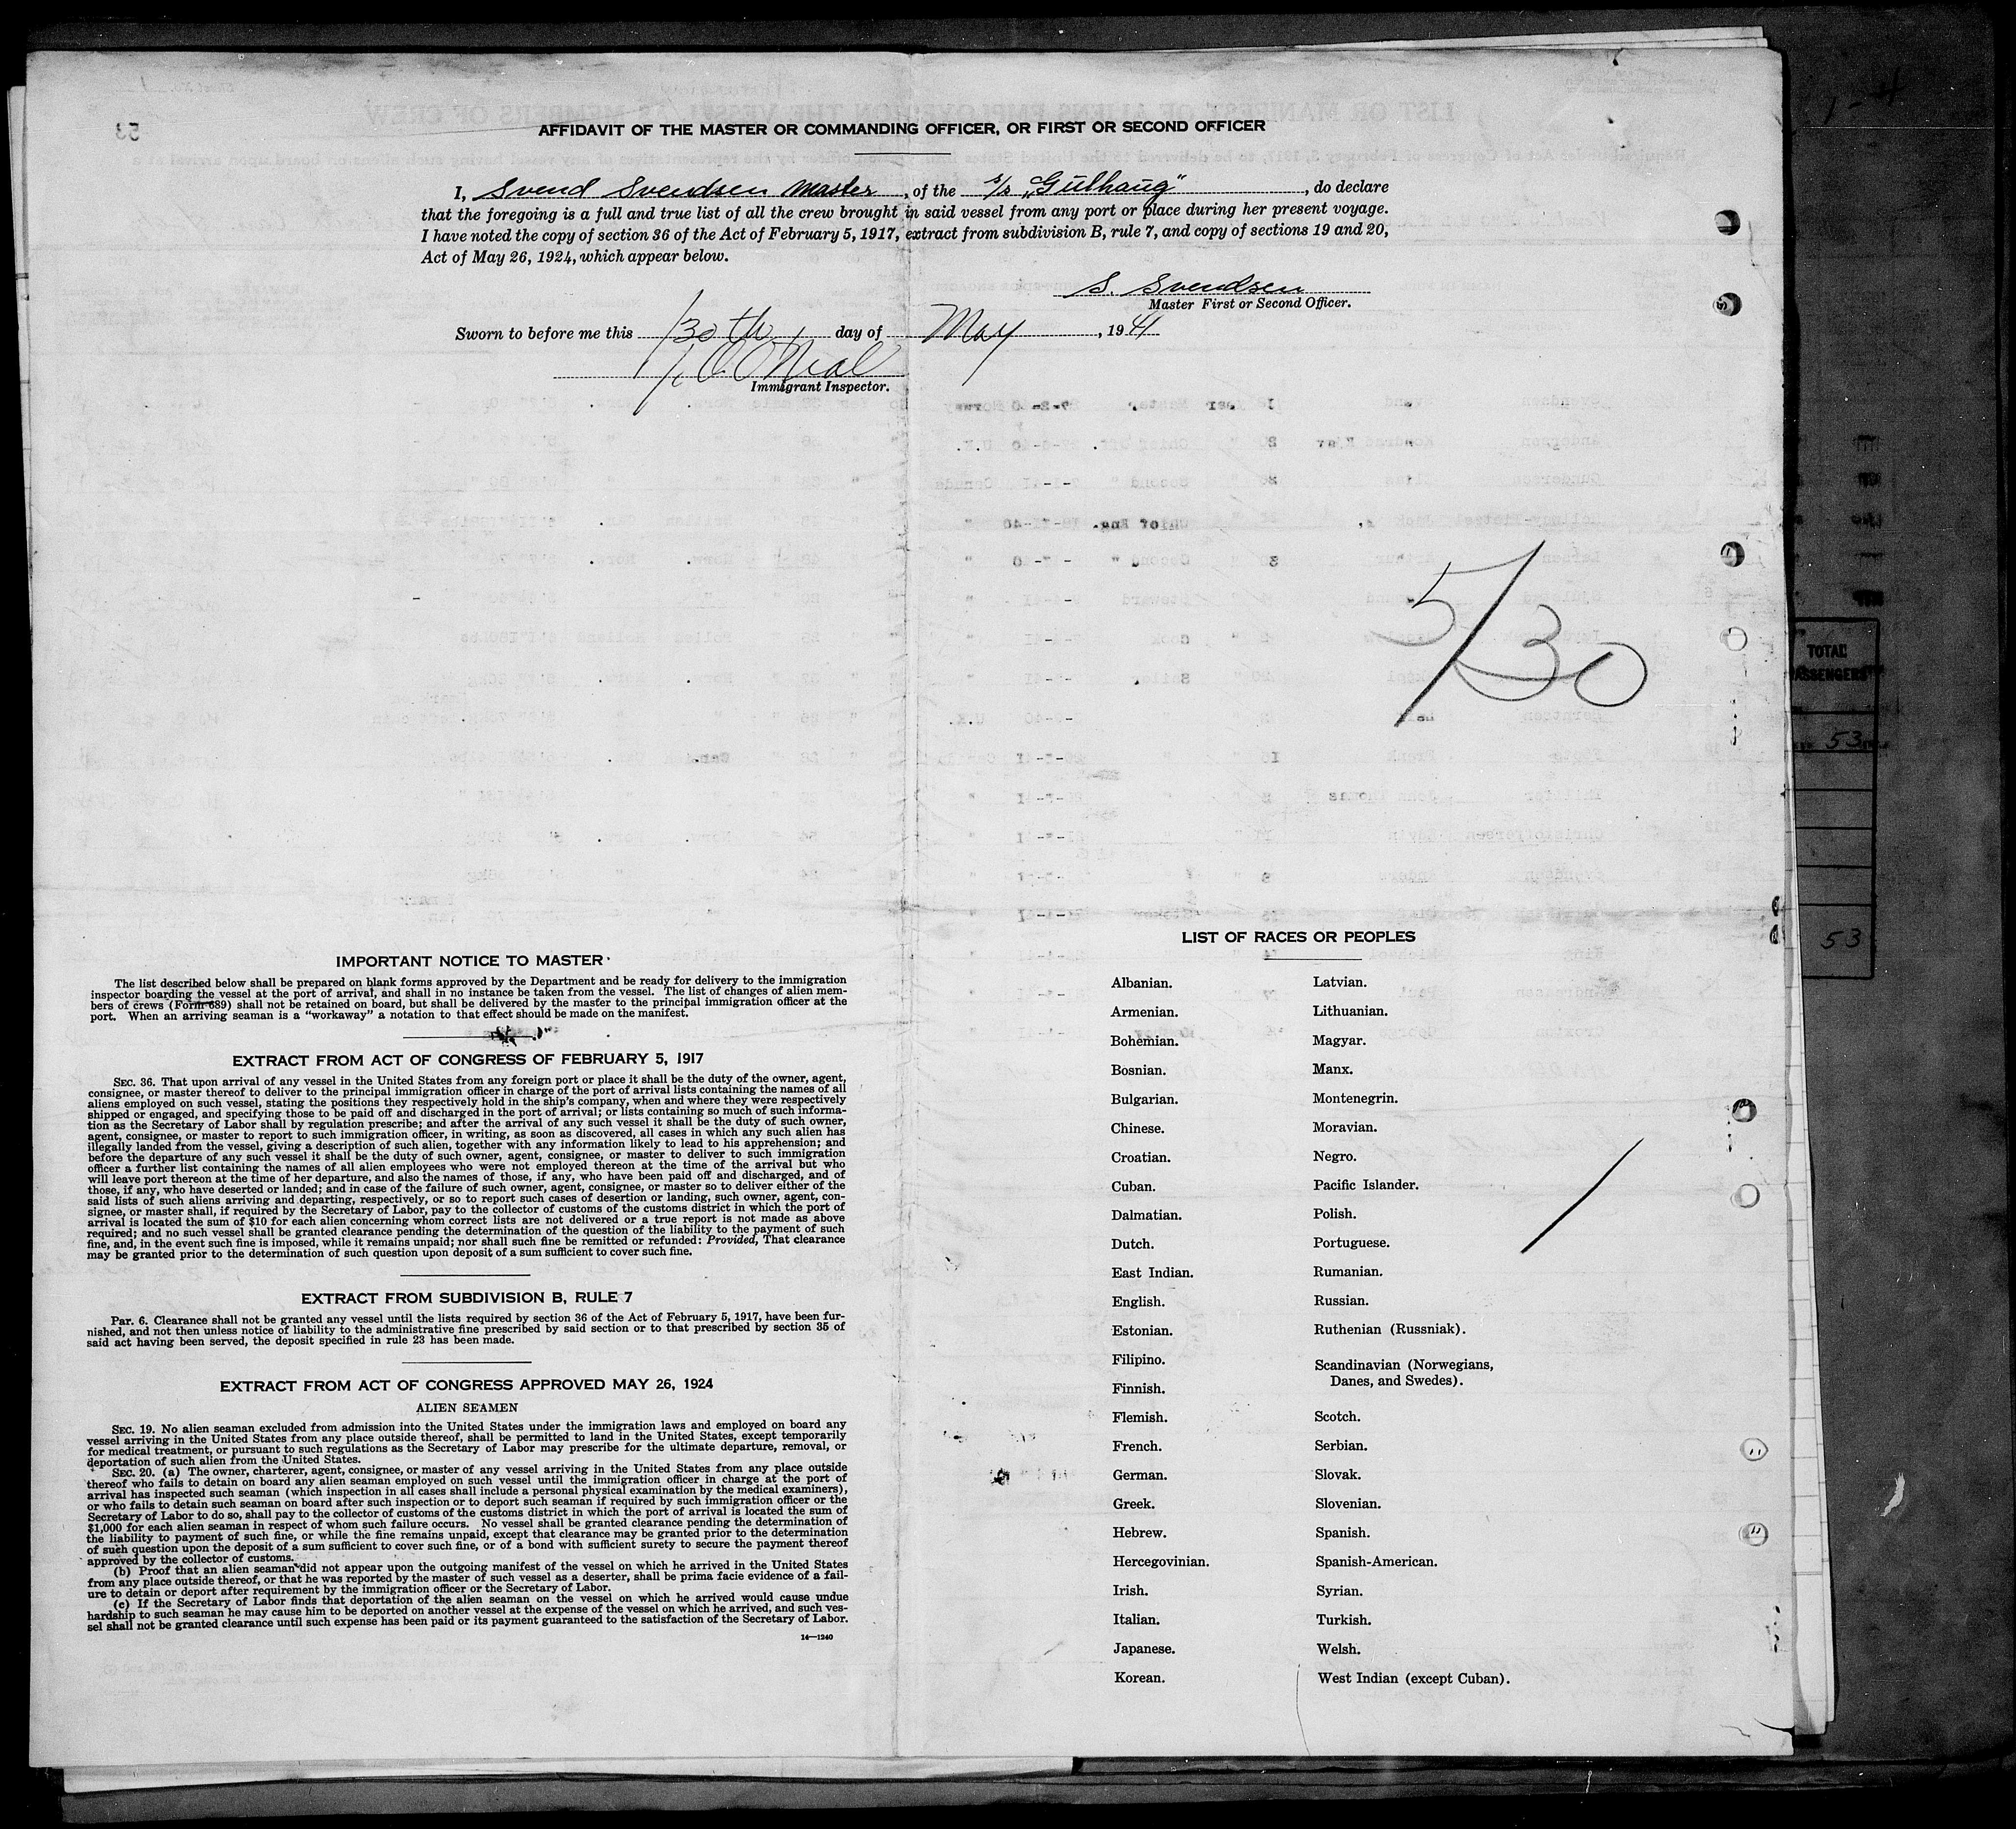 AFFIDAVIT OF THE MASTER OR COMMANDING OFFICER, OR FIRST OR SECOND OFFICER
I, Svend Svendsen Master, of the s/s „Gulhaug", do declare
that the foregoing is a full and true list of all the crew brought in said vessel from any port or place during her present voyage.
I have noted the copy of section 36 of the Act of February 5, 1917, extract from subdivision B, rule 7, and copy of sections 19 and 20,
Act of May 26, 1924, which appear below.
S. Svendsen
Master First or Second Officer.
Sworn to before me this 30th day of May, 1941
O'Neal
Immigrant Inspector.
5/30
TOTAL
PASSENGERS
53
53
IMPORTANT NOTICE TO MASTER
The list described below shall be prepared on blank forms approved by the Department and be ready for delivery to the immigration
inspector boarding the vessel at the port of arrival, and shall in no instance be taken from the vessel. The list of changes of alien mem-
bers of crews (Form 689) shall not be retained on board, but shall be delivered by the master to the principal immigration officer at the
port. When an arriving seaman is a "workaway" a notation to that effect should be made on the manifest.
EXTRACT FROM ACT OF CONGRESS OF FEBRUARY 5, 1917
SEC. 36. That upon arrival of any vessel in the United States from any foreign port or place it shall be the duty of the owner, agent,
consignee, or master thereof to deliver to the principal immigration officer in charge of the port of arrival lists containing the names of all
aliens employed on such vessel, stating the positions they respectively hold in the ship's company, when and where they were respectively
shipped or engaged, and specifying those to be paid off and discharged in the port of arrival; or lists containing so much of such informa-
tion as the Secretary of Labor shall by regulation prescribe; and after the arrival of any such vessel it shall be the duty of such owner,
agent, consignee, or master to report to such immigration officer, in writing, as soon as discovered, all cases in which any such alien has
illegally landed from the vessel, giving a description of such alien, together with any information likely to lead to his apprehension; and
before the departure of any such vessel it shall be the duty of such owner, agent, consignee, or master to deliver to such immigration
officer a further list containing the names of all alien employees who were not employed thereon at the time of the arrival but who
will leave port thereon at the time of her departure, and also the names of those, if any, who have been paid off and discharged, and of
those, if any, who have deserted or landed; and in case of the failure of such owner, agent, consignee, or master so to deliver either of the
said lists of such aliens arriving and departing, respectively, or so to report such cases of desertion or landing, such owner, agent, con-
signee, or master shall, if required by the Secretary of Labor, pay to the collector of customs of the customs district in which the port of
arrival is located the sum of $10 for each alien concerning whom correct lists are not delivered or a true report is not made as above
required; and no such vessel shall be granted clearance pending the determination of the question of the liability to the payment of such
fine, and, in the event such fine is imposed, while it remains unpaid; nor shall such fine be remitted or refunded: Provided, That clearance
may be granted prior to the determination of such question upon deposit of a sum sufficient to cover such fine.
EXTRACT FROM SUBDIVISION B, RULE 7
Par. 6. Clearance shall not be granted any vessel until the lists required by section 36 of the Act of February 5, 1917, have been fur-
nished, and not then unless notice of liability to the administrative fine prescribed by said section or to that prescribed by section 35 of
said act having been served, the deposit specified in rule 23 has been made.
EXTRACT FROM ACT OF CONGRESS APPROVED MAY 26, 1924
ALIEN SEAMEN
SEC. 19. No alien seaman excluded from admission into the United States under the immigration laws and employed on board any
vessel arriving in the United States from any place outside thereof, shall be permitted to land in the United States, except temporarily
for medical treatment, or pursuant to such regulations as the Secretary of Labor may prescribe for the ultimate departure, removal, or
deportation of such alien from the United States.
SEC. 20. (a) The owner, charterer, agent, consignee, or master of any vessel arriving in the United States from any place outside
thereof who fails to detain on board any alien seaman employed on such vessel until the immigration officer in charge at the port of
arrival has inspected such seaman (which inspection in all cases shall include a personal physical examination by the medical examiners),
or who fails to detain such seaman on board after such inspection or to deport such seaman if required by such immigration officer or the
Secretary of Labor to do so, shall pay to the collector of customs of the customs district in which the port of arrival is located the sum of
$1,000 for each alien seaman in respect of whom such failure occurs. No vessel shall be granted clearance pending the determination of
the liability to payment of such fine, or while the fine remains unpaid, except that clearance may be granted prior to the determination
of such question upon the deposit of a sum sufficient to cover such fine, or of a bond with sufficient surety to secure the payment thereof
approved by the collector of customs.
(b) Proof that an alien seaman did not appear upon the outgoing manifest of the vessel on which he arrived in the United States
from any place outside thereof, or that he was reported by the master of such vessel as a deserter, shall be prima facie evidence of a fail-
ure to detain or deport after requirement by the immigration officer or the Secretary of Labor.
(c) If the Secretary of Labor finds that deportation of the alien seaman on the vessel on which he arrived would cause undue
hardship to such seaman he may cause him to be deported on another vessel at the expense of the vessel on which he arrived, and such ves-
sel shall not be granted clearance until such expense has been paid or its payment guaranteed to the satisfaction of the Secretary of Labor.
14—1240
LIST OF RACES OR PEOPLES
Albanian.
Armenian.
Bohemian.
Bosnian.
Bulgarian.
Chinese.
Croatian.
Cuban.
Dalmatian.
Dutch.
East Indian.
English.
Estonian.
Filipino.
Finnish.
Flemish.
French.
German.
Greek.
Hebrew.
Hercegovinian.
Irish.
Italian.
Japanese.
Korean.
Latvian.
Lithuanian.
Magyar.
Manx.
Montenegrin.
Moravian.
Negro.
Pacific Islander.
Polish.
Portuguese.
Rumanian.
Russian.
Ruthenian (Russniak).
Scandinavian (Norwegians,
Danes, and Swedes).
Scotch.
Serbian.
Slovak.
Slovenian.
Spanish.
Spanish-American.
Syrian.
Turkish.
Welsh.
West Indian (except Cuban).